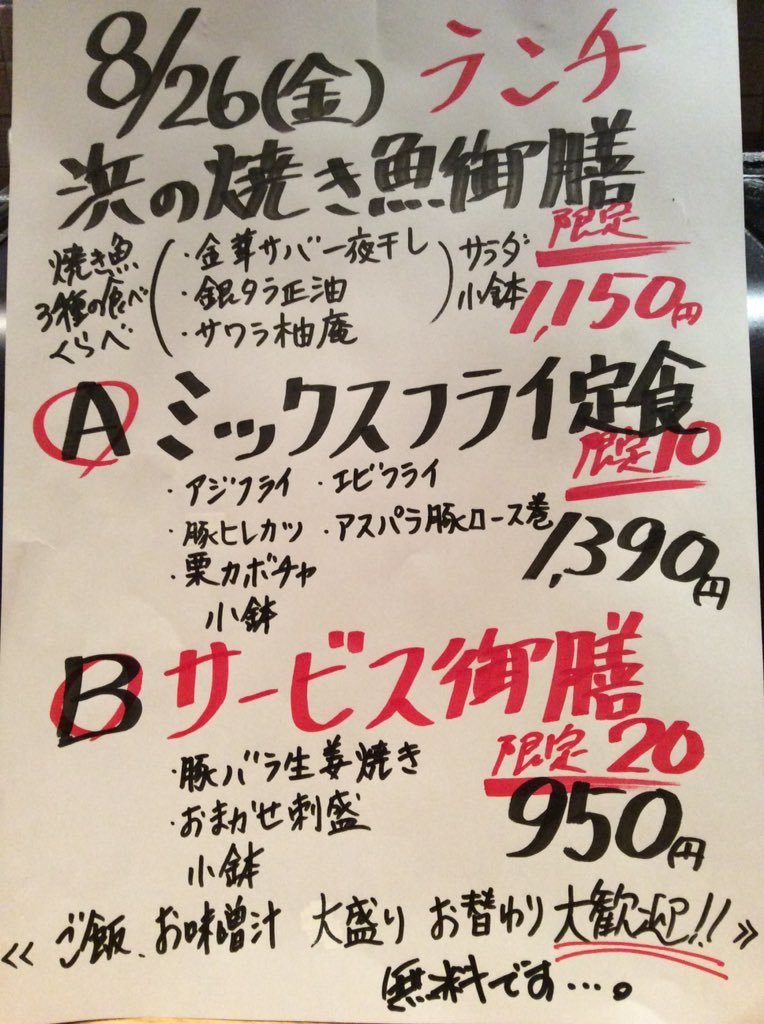 8/26(金) ランチ
浜の焼き魚御膳
限定
焼き魚
3種の食べ
くらべ
・金華サバ一夜干し
・銀タラ正油
・サワラ柚庵
サラダ
小鉢
1,150円
A ミックスフライ定食
限定10
・アジフライ ・エビフライ
・豚ヒレカツ ・アスパラ豚ロース巻
・栗カボチャ
小鉢
1,390円
B サービス御膳
限定20
・豚バラ生姜焼き
・おまかせ刺盛
小鉢
950円
≪ご飯、お味噌汁 大盛り お替わり 大歓迎!!≫
無料です…。